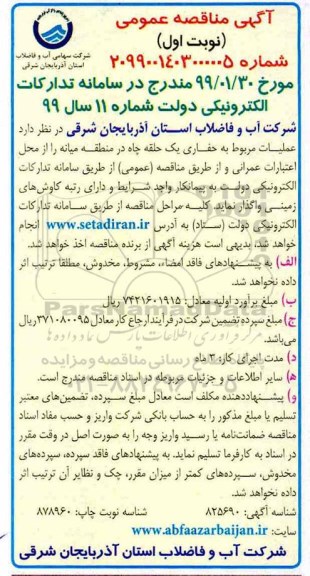 آگهی مناقصه عمومی
(نوبت اول)
شرکت سهامی آب و فاضلاب
استان آذربایجان شرقی
شماره ۲۰۹۹۰۰۱۴۰۳۰۰۰۰۰۵
مورخ ۹۹/۰۱/۳۰ مندرج در سامانه تدارکات
الکترونیکی دولت شماره ۱۱ سال ۹۹
شرکت آب و فاضلاب استان آذربایجان شرقی در نظر دارد
عملیات مربوط به حفاری یک حلقه چاه در منطقه میانه را از محل
اعتبارات عمرانی و از طریق مناقصه (عمومی) از طریق سامانه تدارکات
الکترونیکی دولت به پیمانکار واجد شرایط و دارای رتبه کاوش‌های
زمینی واگذار نماید. کلیه مراحل مناقصه از طریق سامانه تدارکات
الکترونیکی دولت (ستاد) به آدرس www.setadiran.ir انجام
خواهد شد، بدیهی است هزینه آگهی از برنده مناقصه اخذ خواهد شد.
الف) به پیشنهادهای فاقد امضاء، مشروط، مخدوش، مطلقا ترتیب اثر
داده نخواهد شد.
ب) مبلغ برآورد اولیه معادل: ۷۴۲۱۶۰۱۹۱۵ ریال
ج) مبلغ سپرده تضمین شرکت در فرآیند ارجاع کار معادل ۳۷۱۰۸۰۰۹۵ ریال
می‌باشد.
د) مدت اجرای کار: ۳ ماه
ه) سایر اطلاعات و جزئیات مربوطه در اسناد مناقصه مندرج است.
و) پیشنهاددهنده مکلف است معادل مبلغ سپرده، تضمین‌های معتبر
تسلیم یا مبلغ مذکور را به حساب بانکی شرکت واریز و حسب مفاد اسناد
مناقصه ضمانت‌نامه یا رسید واریز وجه را به صورت اصل در وقت مقرر
در اسناد به کارفرما تسلیم نماید. به پیشنهادهای فاقد سپرده، سپرده‌های
مخدوش، سپرده‌های کمتر از میزان مقرر، چک و نظایر آن ترتیب اثر
داده نخواهد شد.
شناسه آگهی: ۸۲۵۶۹۰ شناسه نوبت چاپ: ۸۷۸۹۶۰
سایت: www.abfaazarbaijan.ir
شرکت آب و فاضلاب استان آذربایجان شرقی